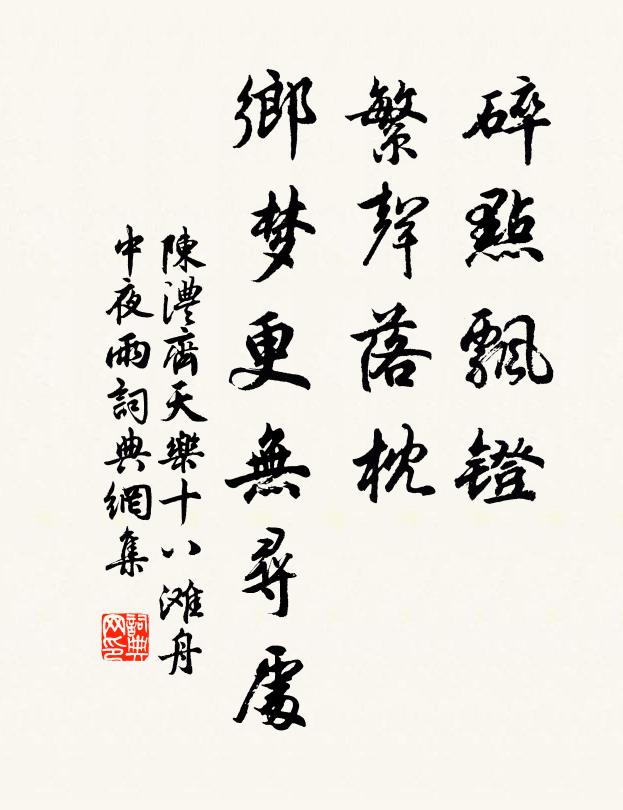 碎點飄鐙
繁聲落枕
鄉梦更無尋處
陳澧齊天樂十八滩舟
中夜雨詞典網集
詞典
网印